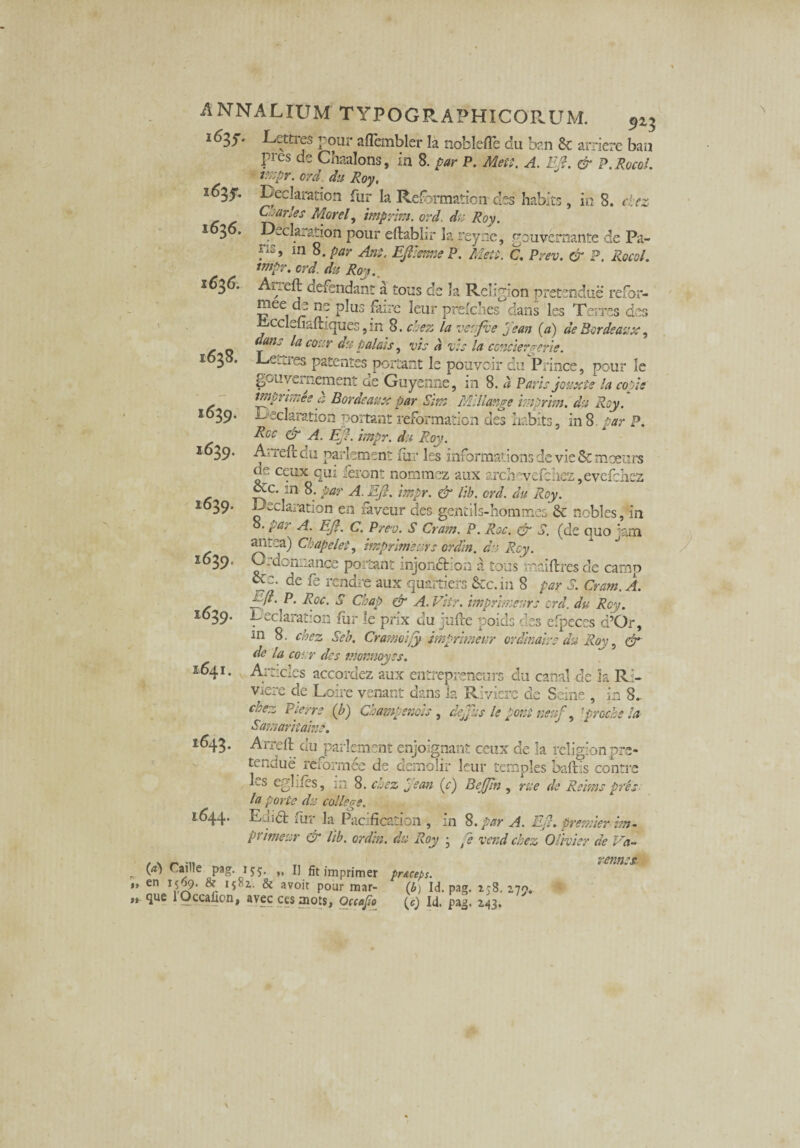 ANNALIUM TYPOGRAPHICORUM. 923
1635. Lettres pour assembler la noblesse du ban & arriere ban
près de Chaalons, in 8. par P. Mett. A. Est. & P. Rocol.
impr. ord. du Roy.
1635. Declaration sur la Reformation des habits, in 8. chez
Charles Morel, imprim. ord. du Roy.
1636. Declaration pour establir la reyne, gouvernante de Pa-
ris, in 8. par Ant. Estienne P. Mett. C. Prev. & P. Rocol.
impr. ord. du Roy.
1636. Arrest defendant à tous de la Religion pretenduë refor-
mée de ne plus faire leur presches dans les Terres des
Ecclesiastiques, in 8. chez la veusve Jean (a) de Bordeaux,
dans la cour du palais, vis à vis la conciergerie.
1638. Lettres patentes portant le pouvoir du Prince, pour le
gouvernement de Guyenne, in 8. à Paris jouxte la copie
imprimée à Bordeaux par Sim Millange imprim. du Roy.
1639. Declaration portant reformation des habits, in 8. par P.
Roc & A. Est. impr. du Roy.
1639. Arrest du parlement sur les informations de vie & mœurs
de ceux qui seront nommez aux archeveschez, eveschez
&c. in 8. par A. Est. impr. & lib. ord. du Roy.
1639. Declaration en faveur des gentils-hommes & nobles, in
8. par A. Est. C. Prev. S Cram. P. Roc. & S. (de quo jam
antea) Chapelet, imprimeurs ordin. du Roy.
1639. Ordonnance portant injonction à tous maistres de camp
&c. de se rendre aux quartiers &c. in 8 par S. Cram. A.
Est. P. Roc. S Chap & A. Vitr. imprimeurs ord. du Roy.
1639. Declaration sur le prix du juste poids des especes d'Or,
in 8. chez Seb. Cramoisy imprimeur ordinaire du Roy, &
de la cour des monnoyes.
1641. Articles accordez aux entrepreneurs du canal de la Ri-
viere de Loire venant dans la Riviere de Seine, in 8.
chez Pierre (b) Champenois, dessus le pont neuf, proche la
Samaritaine.
1643. Arrest du parlement enjoignant ceux de la religion pre-
tenduë reformée de demolir leur temples bastis contre
les eglises, in 8. chez Jean (c) Bessin, rue de Reims prés
la porte du college.
1644. Edict sur la Pacification, in 8. par A. Est. premier im-
primeur & lib. ordin. du Roy; se vend chez Olivier de Va-
rennes.
(a) Caille pag. 155. „ Il fit imprimer
„ en 1569. & 1582. & avoit pour mar-
„ que l'Occasion, avec ces mots, Occasio
præceps.
(b) Id. pag. 258. 279.
(c) Id. pag. 243.